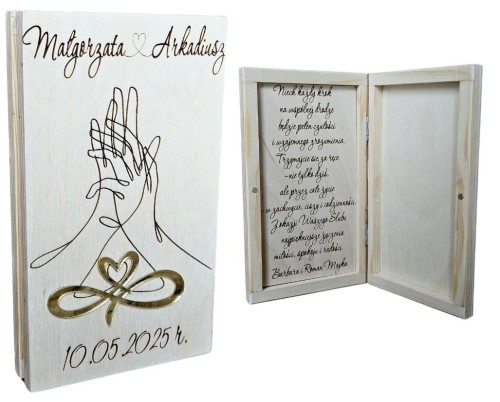 Małgorzata Arkadiusz
10.05.2025 r.
Niech każdy krok
na wspólnej drodze
będzie pełen czułości
i wzajemnego zrozumienia.
Trzymajcie się za ręce
-nie tylko dziś,
ale przez całe życie
w zachwycie, ciszy i codzienności.
Z okazji Waszego Ślubu
najpiękniejsze życzenia
miłości, spokoju i radości.
Barbara i Roman